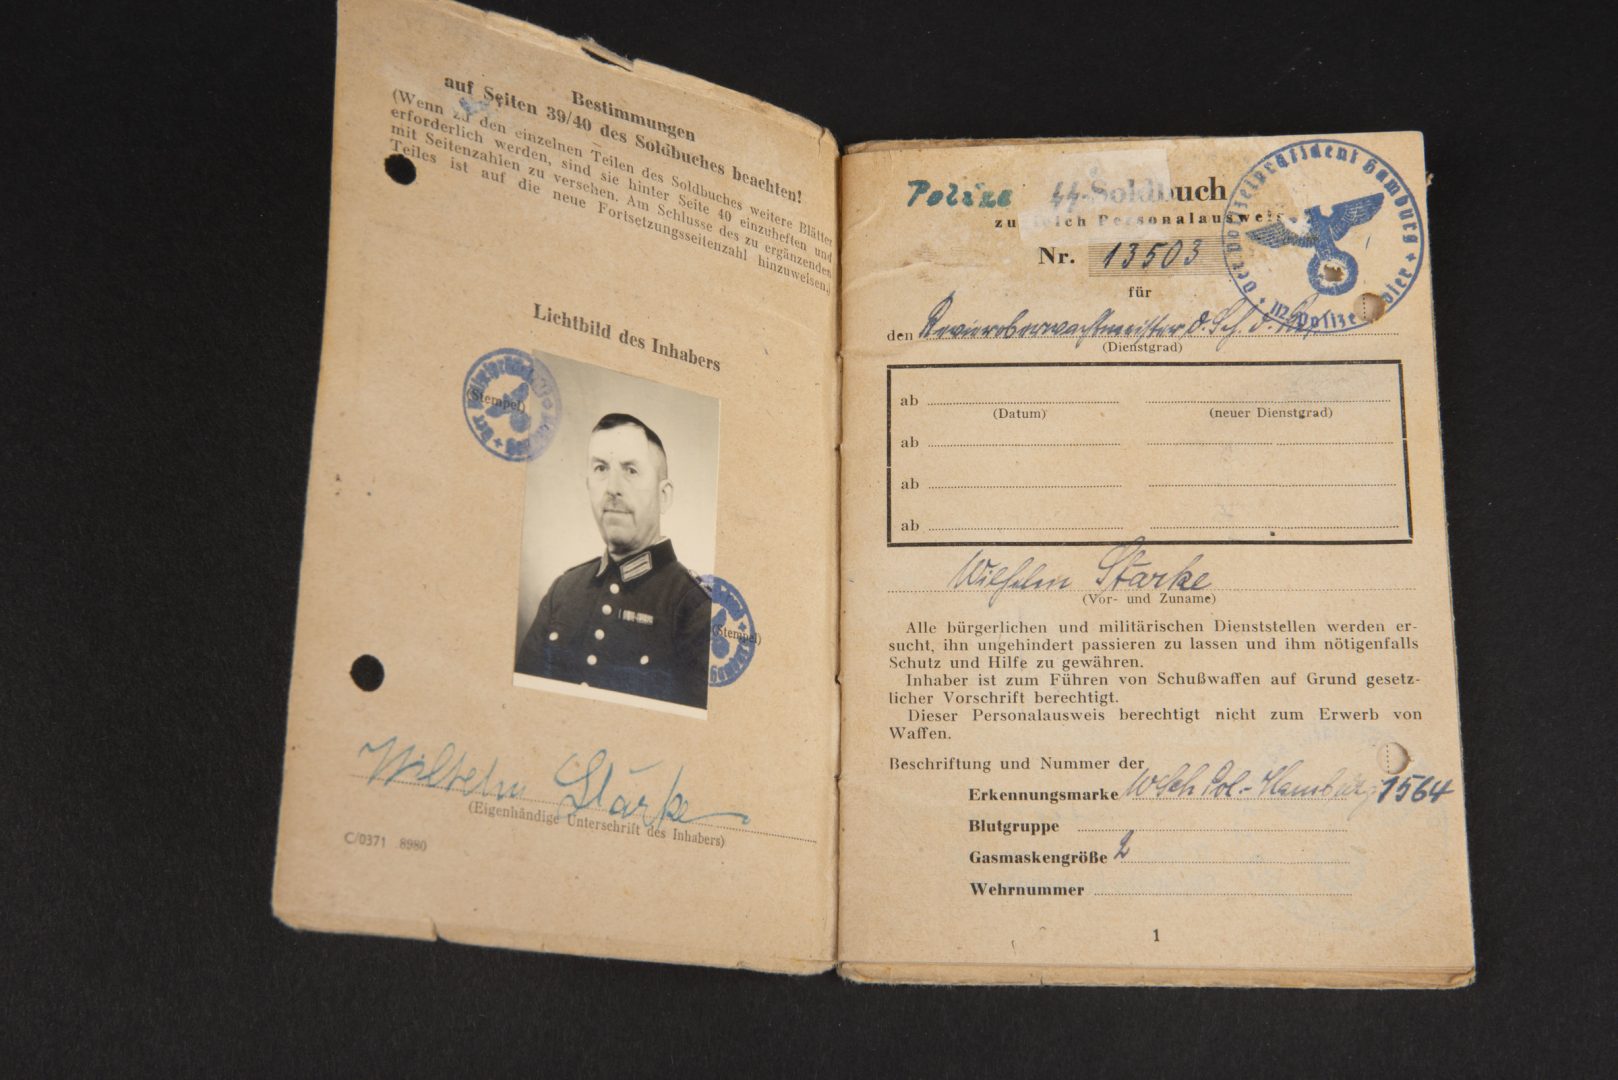 Bestimmungen
auf Seiten 39/40 des Soldbuches beachten!
(Wenn zu den einzelnen Teilen des Soldbuches weitere Blätter
erforderlich werden, sind sie hinter Seite 40 einzuheften und
mit Seitenzahlen zu versehen. Am Schlusse des zu ergänzenden
Teiles ist auf die neue Fortsetzungsseitenzahl hinzuweisen.)
Lichtbild des Inhabers
(Stempel)
(Stempel)
Wilhelm Starke
(Eigenhändige Unterschrift des Inhabers)
C/0371 8980
Polizei SS-Soldbuch
zugleich Personalausweis
Der Polizeipräsident Hamburg
Nr. 13503
für
den Revieroberwachtmeister d. Sch. d.
(Dienstgrad)
ab
(Datum) (neuer Dienstgrad)
ab
ab
ab
Wilhelm Starke
(Vor- und Zuname)
Alle bürgerlichen und militärischen Dienststellen werden er-
sucht, ihn ungehindert passieren zu lassen und ihm nötigenfalls
Schutz und Hilfe zu gewähren.
Inhaber ist zum Führen von Schußwaffen auf Grund gesetz-
licher Vorschrift berechtigt.
Dieser Personalausweis berechtigt nicht zum Erwerb von
Waffen.
Beschriftung und Nummer der
Erkennungsmarke Sch Pol.-Hamburg 1564
Blutgruppe
Gasmaskengröße 2
Wehrnummer
1